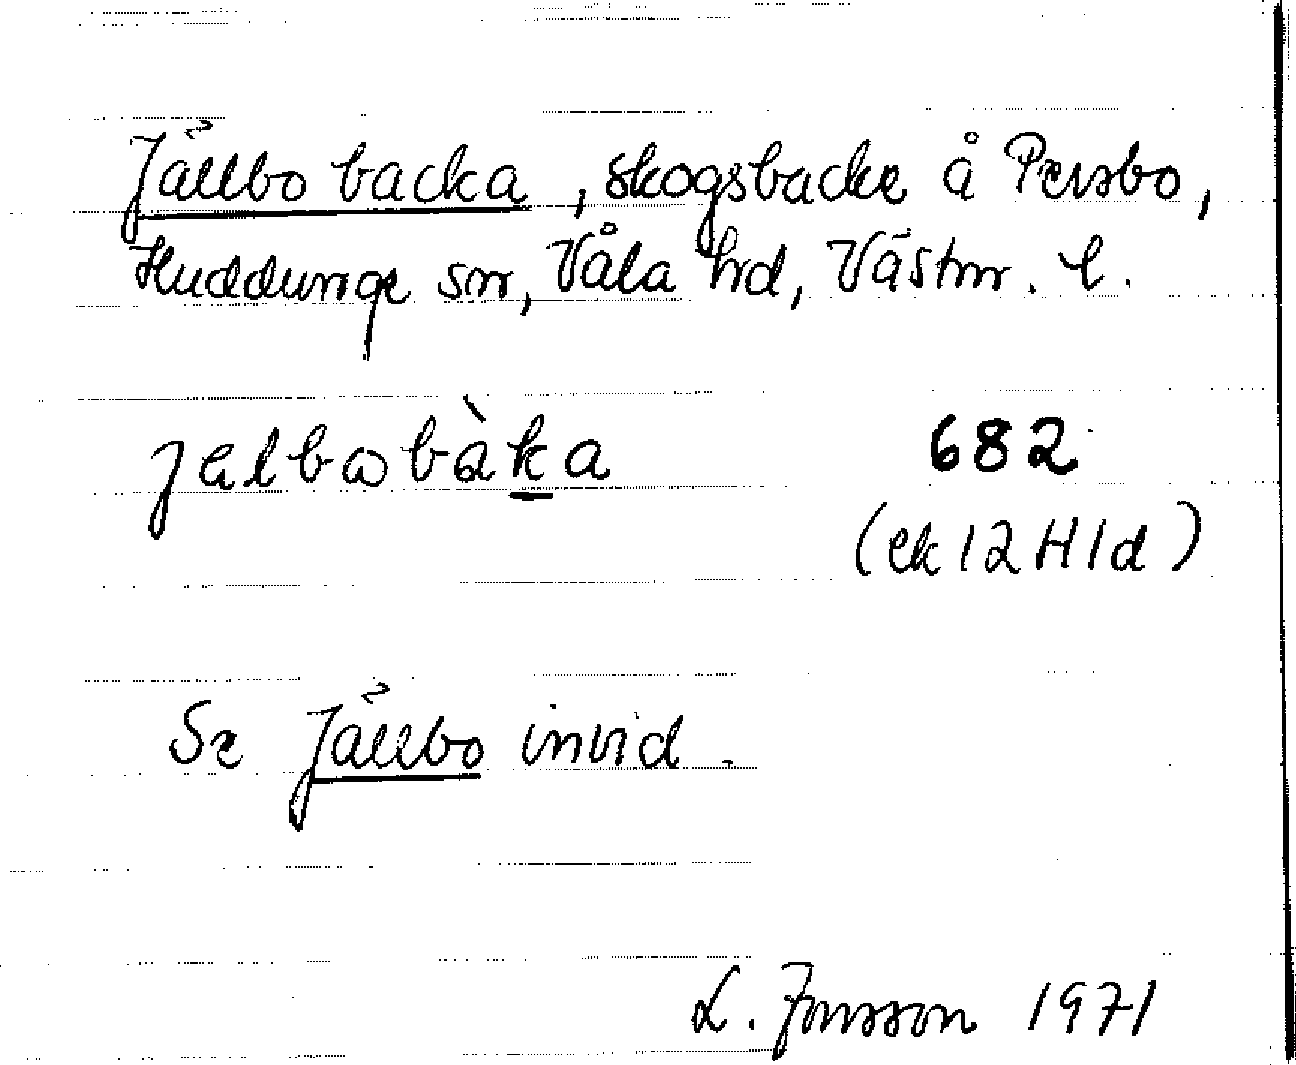 Jällbo backa, skogsbacke å Persbo,
Huddunge sn, Våla hd, Västm. l.
jælbωbàka 682
(ek 12 H 1d)
Se Jällbo invid.
L. Jonsson 1971